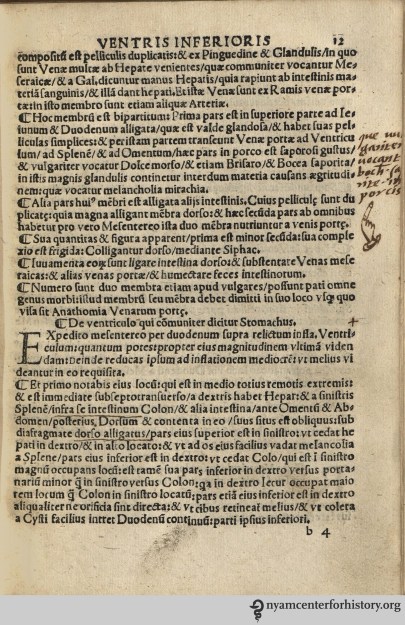 VENTRIS INFERIORIS 12
cōpositū est pelliculis duplicatis: & ex Pinguedine & Glandulis/in quo
sunt Venæ multæ ab Hepate venientes/quæ communiter vocantur Me-
seraicæ/& a Gal. dicuntur manus Hepatis/quia rapiunt ab intestinis ma-
teriā sanguinis/& illā dant hepati. Et istæ Venæ sunt ex Ramis venæ por-
tæ: in isto membro sunt etiam aliquæ Arteriæ.
¶ Hoc membrū est bipartitum: Prima pars est in superiore parte ad Ie-
iunum & Duodenum alligata/quæ est valde glandosa/& habet suas pel-
liculas simplices: & per istam partem transeunt Venæ portæ ad Ventricu
lum/ad Splenē/& ad Omentum/hæc pars in porco est saporosi gustus/
& vulgariter vocatur Dolce morso/& etiam Brisaro/& Bocca saporita/
in istis magnis glandulis continetur interdum materia causans ægritudi-
nem: quæ vocatur melancholia mirachia.
¶ Alia pars huiꝰ mēbri est alligata alijs intestinis. Cuius pelliculę sunt du
plicatę: quia magna alligant mēbra dorso: & hæc secūda pars ab omnibus
habetur pro vero Mesentereo ista duo mēbra nutriuntur a venis portę.
¶ Sua quantitas & figura apparent/prima est minor secūda: sua comple
xio est frigida: Colligantur dorso/mediante Siphac.
¶ Iuuamenta eoꝝ sunt ligare intestina dorso: & substentate Venas mese
raicas: & alias venas portæ/& humectare feces intestinorum.
¶ Numero sunt duo membra etiam apud vulgares/possunt pati omne
genus morbi: istud membrū seu mēbra debet dimitti in suo loco vsq̄ quo
visa sit Anathomia Venarum portę.
¶ De ventriculo qui cōmuniter dicitur Stomachus. +
EXpedito mesentereo per duodenum supra relictum infla. Ventri-
culum: quantum potes: propter eius magnitudinem vltimā viden
dam: Deinde reducas ipsum ad inflationem mediocrē: vt melius vi
deantur in eo requisita.
¶ Et primo notabis eius locū: qui est in medio totius remotis extremis:
& est immediate sub septo transuerso/a dextris habet Hepar: & a sinistris
Splenē/infra se intestinum Colon/& alia intestina/ante Omentū & Ab-
domen/posterius, Dorsum/& contenta in eo/suus situs est obliquus: sub
diafragmate dorso alligatus/pars eius superior est in sinistro: vt cedat he
pati in dextro/& in alto locato: & vt ad os eius facilius vadat melancolia
a Splene/pars eius inferior est in dextro: vt cedat Colo/qui est ī sinistro
magnū occupans locū: est tamē sua pars inferior in dextro versus porta-
narium minor q̄ in sinistro versus Colon: qa in dextro Iecur occupat maio
rem locum q̄ Colon in sinistro locatū: pars etiā eius inferior est in dextro
aliqualiter ne orificia sint directa: & vt cibus retineat̄ melius/& vt colera
a Cysti facilius intret Duodenū continuū: parti ipsius inferiori.
b 4
nyamcenterforhistory.org